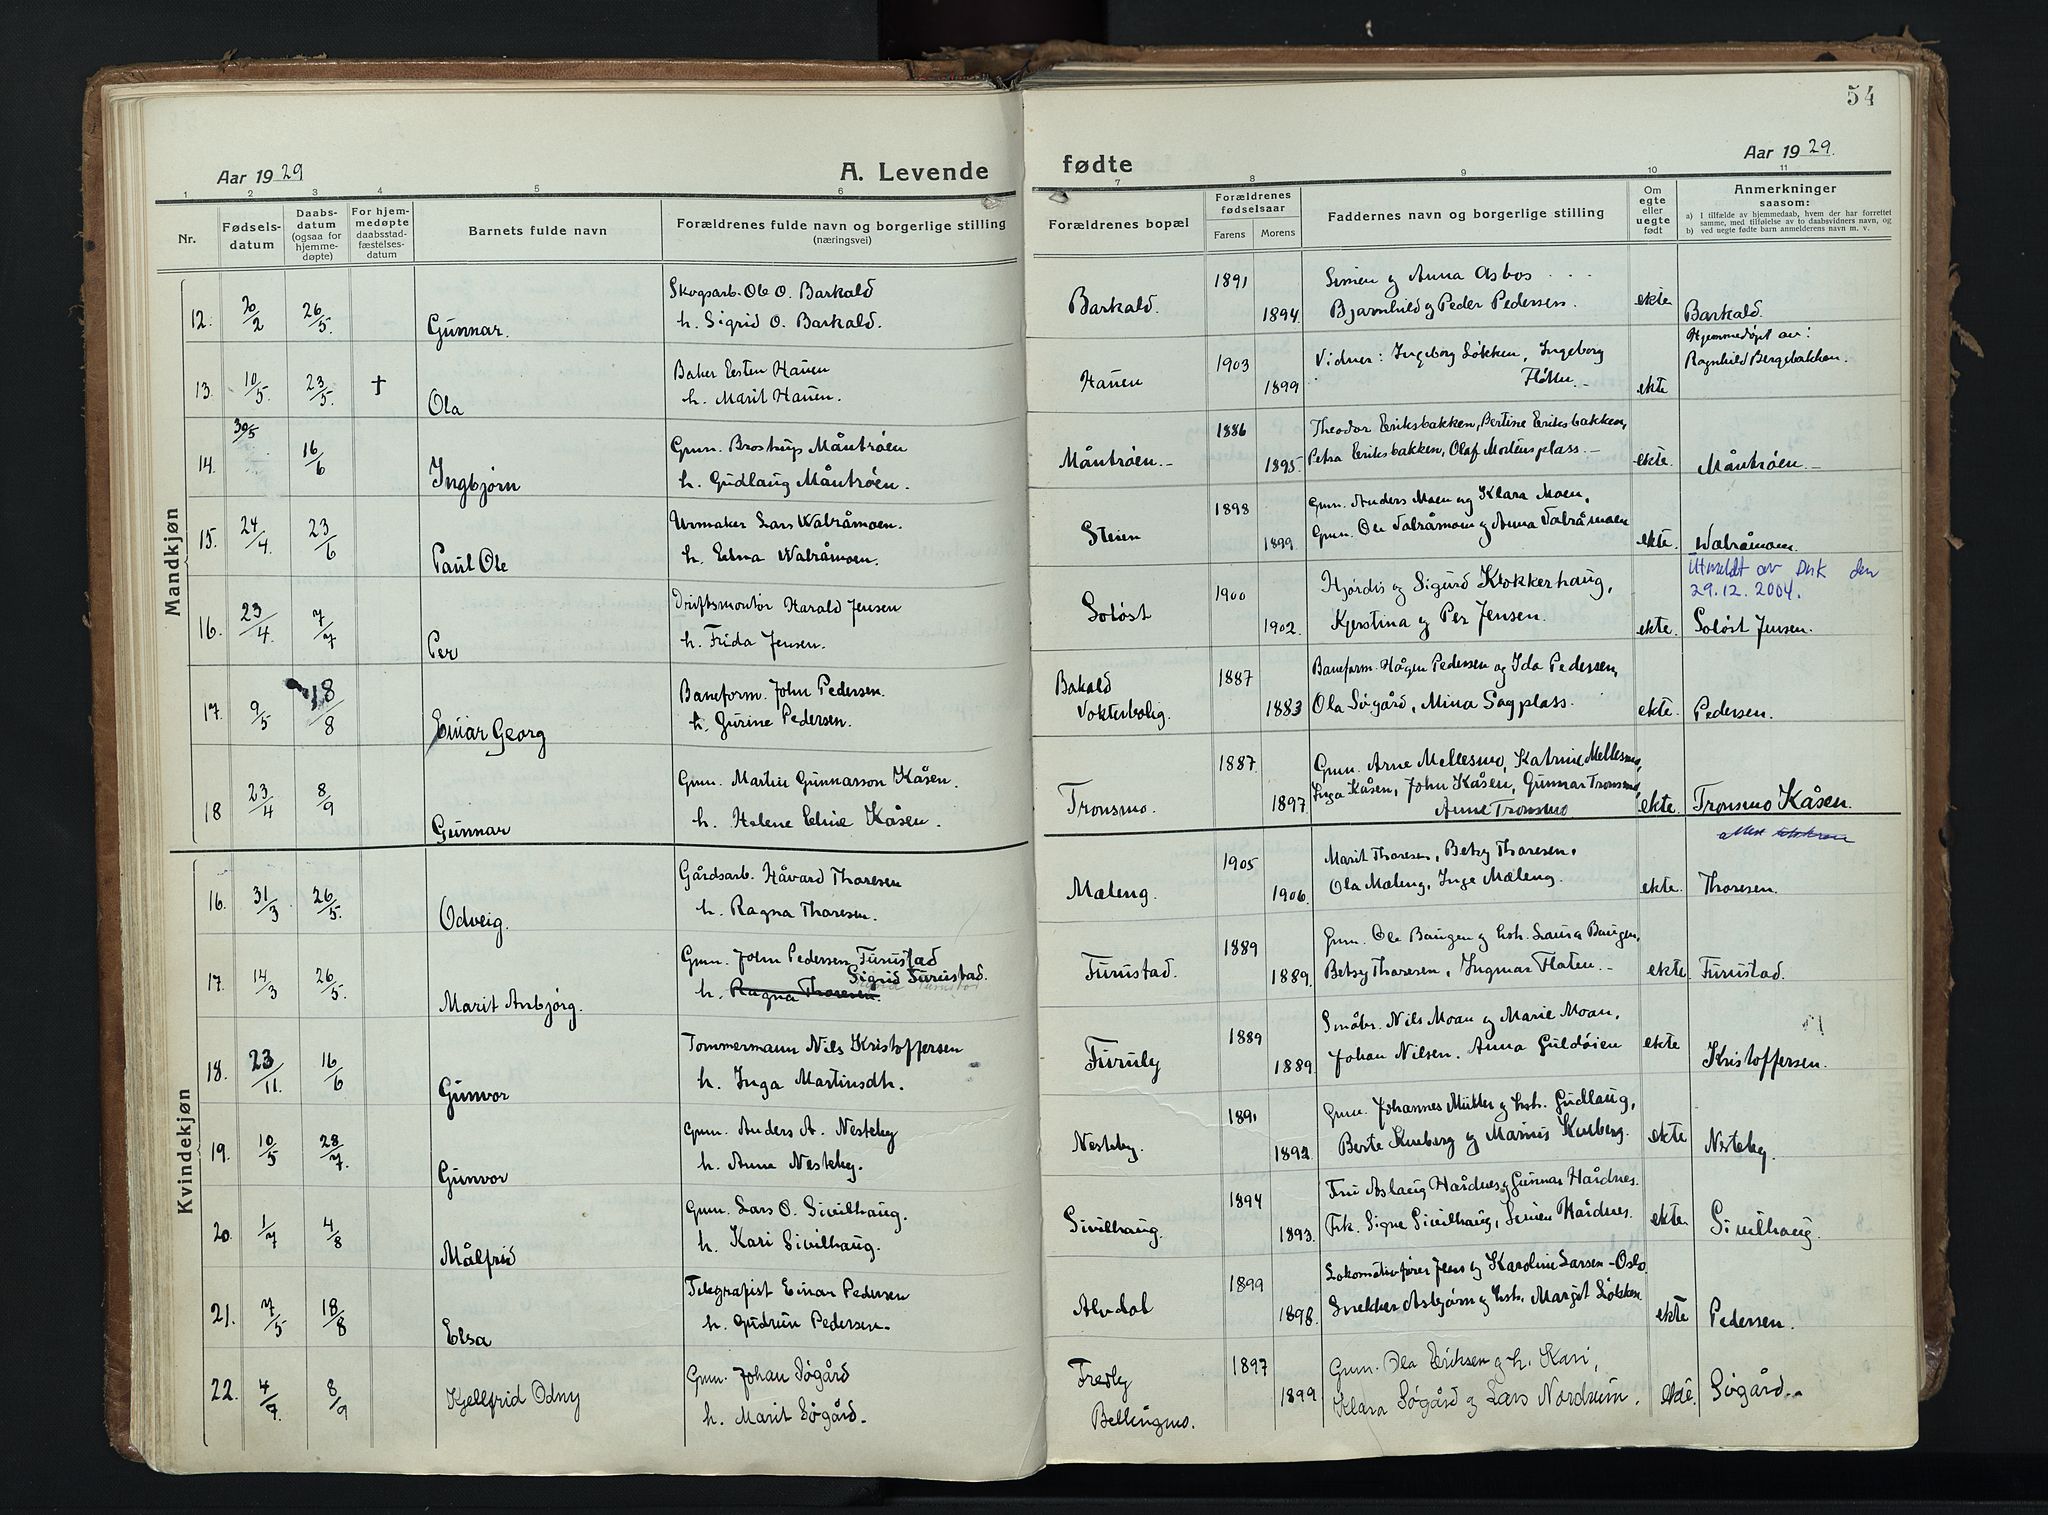 54
Aar 1929
A. Levende
fødte
Aar 1929.
1 2 3 4 5 6 7 8 9 10 11
Nr.
Fødsels-
datum
Daabs-
datum
(ogsaa for
hjemme-
døpte)
For hjem-
medøpte
daabsstad-
fæstelses-
datum
Barnets fulde navn
Forældrenes fulde navn og borgerlige stilling
(næringsvei)
Forældrenes bopæl
Forældrenes
fødselsaar
Farens Morens
Faddernes navn og borgerlige stilling
Om
egte
eller
uegte
født
Anmerkninger
saasom:
a) I tilfælde av hjemmedaab, hvem der har forrettet
samme, med tilføielse av to daabsvidners navn, og
b) ved uegte fødte barn anmelderens navn m. v.
Mandkjøn
12. 20/2 26/5. Gunnar.
Skogsarb. Ole O. Barkald
h. Sigrid O. Barkald.
Barkald. 1891 1894.
Simen og Anna Asbos
Bjarnhild og Peder Pedersen.
ekte Barkald.
13. 10/5. 23/5. † Ola
Baker Eesten Hauen
h. Marit Hauen.
Hauen 1903 1899
Vidner: Ingeborg Løkken, Ingeborg
Fløtten.
ekte
Hjemmedøpt av:
Ragnhild Bergebakken.
14. 30/5 16/6 Ingbjørn
Grm. Brostrup Måntrøen
h. Gudlaug Måntrøen.
Måntrøen. 1886 1895.
Theodor Eriksbakken, Bertine Eriksbakken,
Petra Eriksbakken, Olaf Mortensplass.
ekte. Måntrøen.
15. 24/4. 23/6 Paul Ole
Urmaker Lars Wabråmoen.
h. Edna Wabråmoen.
Steien 1898 1899.
Grm. Anders Moen og Klara Moen,
Grm. Ole Vabråmoen og Anna Vabråmoen
ekte. Wabråmoen.
Utmeldt av Dnk den
29.12.2004.
16. 23/4. 7/7 Per
Driftsmontør Harald Jensen
h. Frida Jensen.
Soløst 1900 1902.
Hjørdis og Sigurd Klokkerhaug,
Kjerstina og Per Jensen.
ekte. Soløst Jensen.
17. 9/5 18/8 Einar Georg
Baneform. John Pedersen.
h. Gurine Pedersen.
Bakald
Vokterbolig. 1887 1883
Baneform. Hågen Pedersen og Ida Pedersen,
Ola Søgård, Mina Sagplass.
ekte. Pedersen.
18 23/4 8/9 Gunnar
Grm. Martin Gunnarsson Kåsen.
h. Helene Eline Kåsen.
Tronsmo. 1887. 1897
Grm. Arne Mellesmo, Katrine Mellesmo,
Inga Kåsen, John Kåsen, Gunnar Tronsmo,
Anne Tronsmo
ekte. Tronsmo Kåsen.
Kvindekjøn
16. 31/3 26/5. Odveig.
Gårdsarb. Håvard Thoresen
h. Ragna Thoresen.
Mæleng. 1905 1906.
Marit Thoresen, Betsy Thoresen,
Ola Mæleng, Inge Mæleng.
ekte. Thoresen.
17. 14/3 26/5. Marit Anbjørg.
Grm. John Pedersen Furustad
Sigrid Furustad.
h. Ragna Thoresen.
Furustad. 1889 1889.
Grm. Ole Baugen og hstr. Laura Baugen,
Betsy Thoresen, Ingmar Flaten.
ekte. Furustad.
18. 23/11. 16/6 Gunvor
Tømmermann Nils Kristoffersen
h. Inga Martinsdh.
Furuly 1889 1889.
Småbr. Nils Moan og Marie Moan,
Johan Nilsen, Anna Guldøien
ekte Kristoffersen.
19. 10/5 28/7. Gunvor
Grm. Anders A. Nesteby
h. Anne Nesteby.
Nesteby. 1891 1892.
Grm. Johannes Müller og hstr. Gudlaug,
Berte Kulberg og Marius Kulberg.
ekte Nesteby.
20. 1/7 4/8 Målfrid
Grm. Lars O. Sivilhaug.
h. Kari Sivilhaug.
Sivilhaug. 1894 1893.
Fru Aslaug Hårdnes, Gunnar Hårdnes.
Frk. Signe Sivilhaug, Simen Hårdnes.
ekte Sivilhaug.
21. 7/5 18/8 Elsa
Telegrafist Einar Pedersen
h. Gudrun Pedersen.
Alvdal 1899 1898.
Lokomotivfører Jens og Karoline Larsen - Oslo.
Snekker Asbjørn og hstr. Margit Løkken
ekte Pedersen.
22. 4/7. 8/9 Kjellfrid Odny
Grm. Johan Søgård
h. Marit Søgård.
Fredly
Bellingmo. 1897 1899
Grm. Ola Eriksen og h. Kari,
Klara Søgård og Lars Nordrum.
ekte. Søgård.